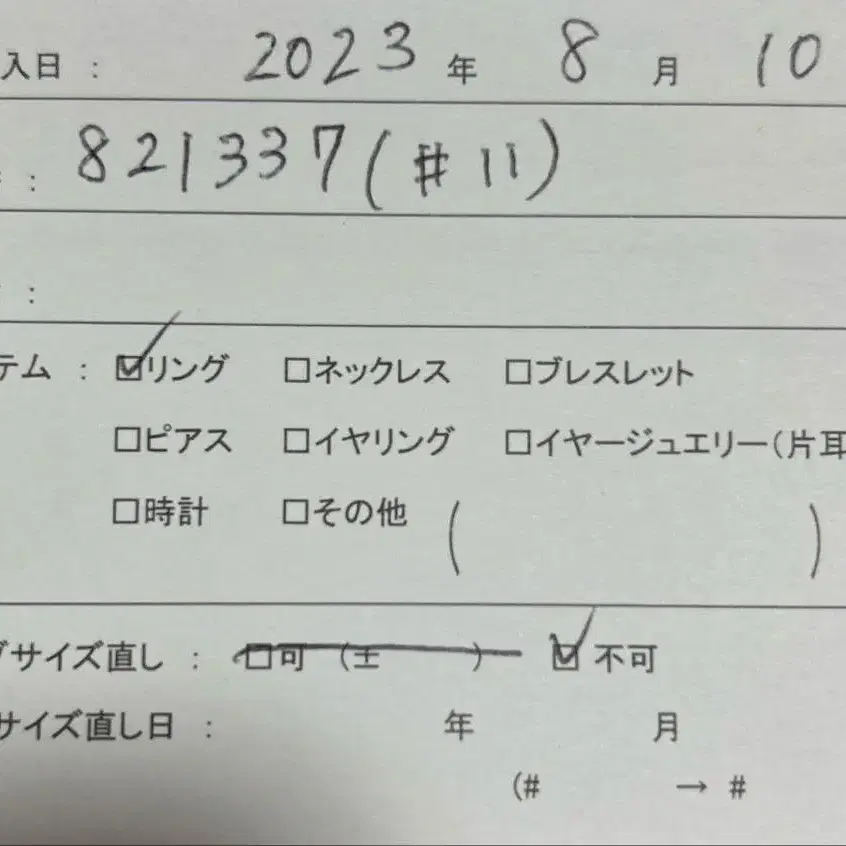 入日 : 2023 年 8 月 10
: 821337(#11)
:
テム : ☑リング □ネックレス □ブレスレット
□ピアス □イヤリング □イヤージュエリー(片耳
□時計 □その他 ( )
サイズ直し : □可 (± ) ☑不可
サイズ直し日 : 年 月
(# → #